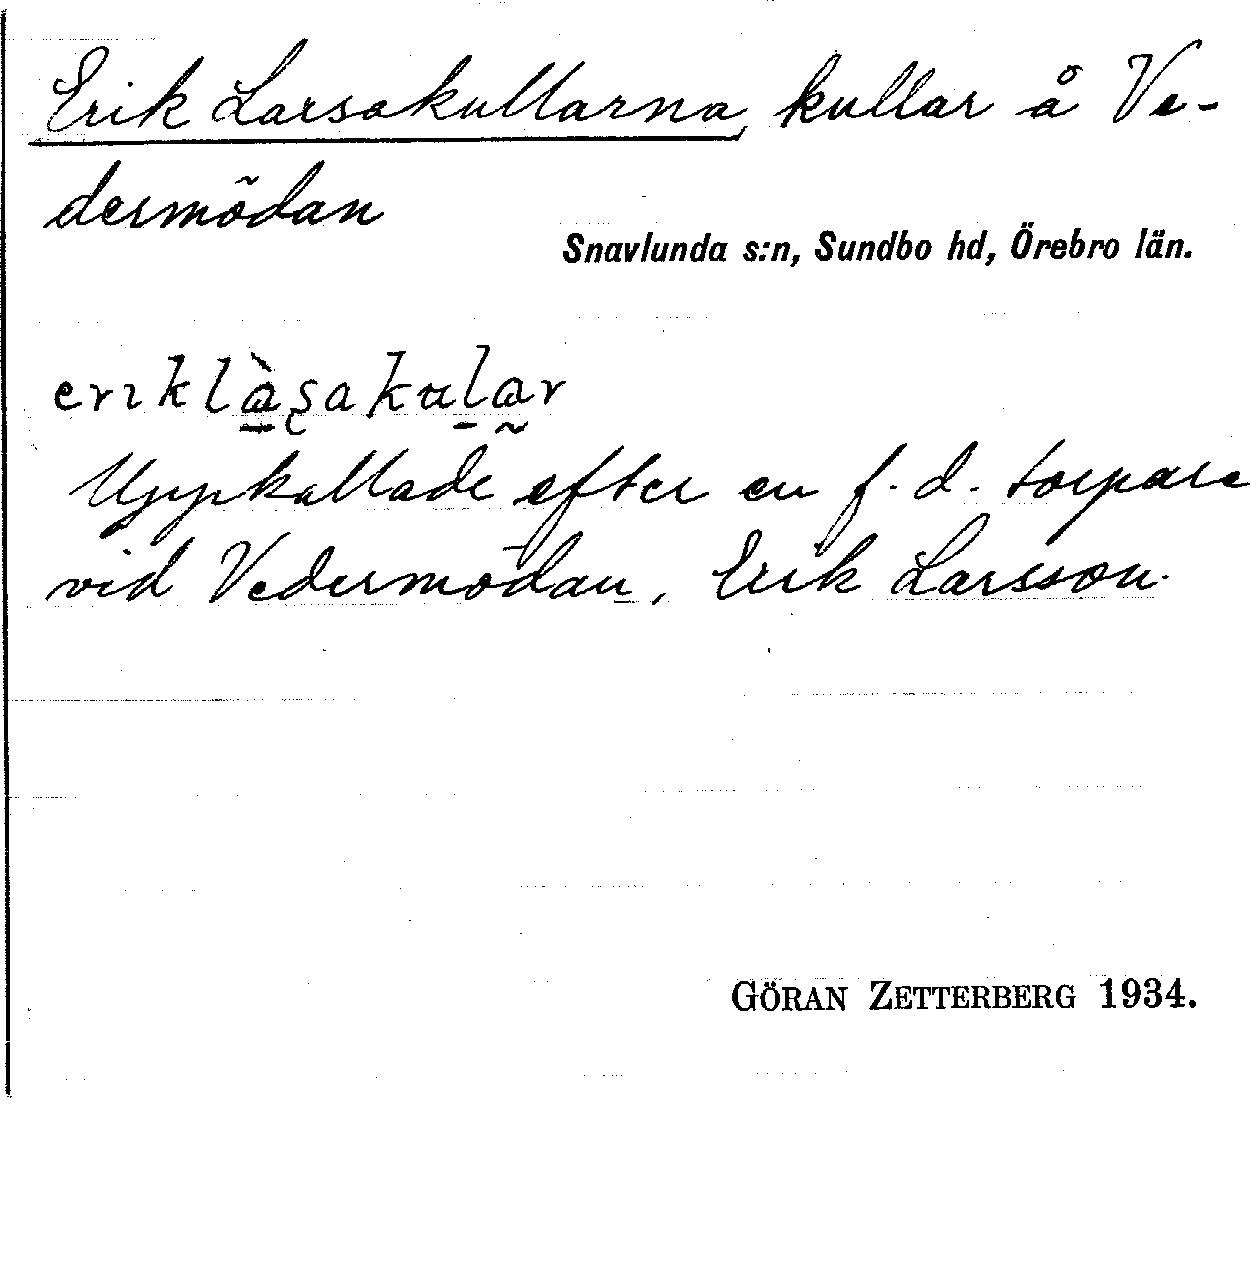 Erik Larsakullarna, kullar å Ve-
dermödan
Snavlunda s:n, Sundbo hd, Örebro län.
eriklàs̨akular
Uppkallade efter en f. d. torpare
vid Vedermödan, Erik Larsson.
GÖRAN ZETTERBERG 1934.